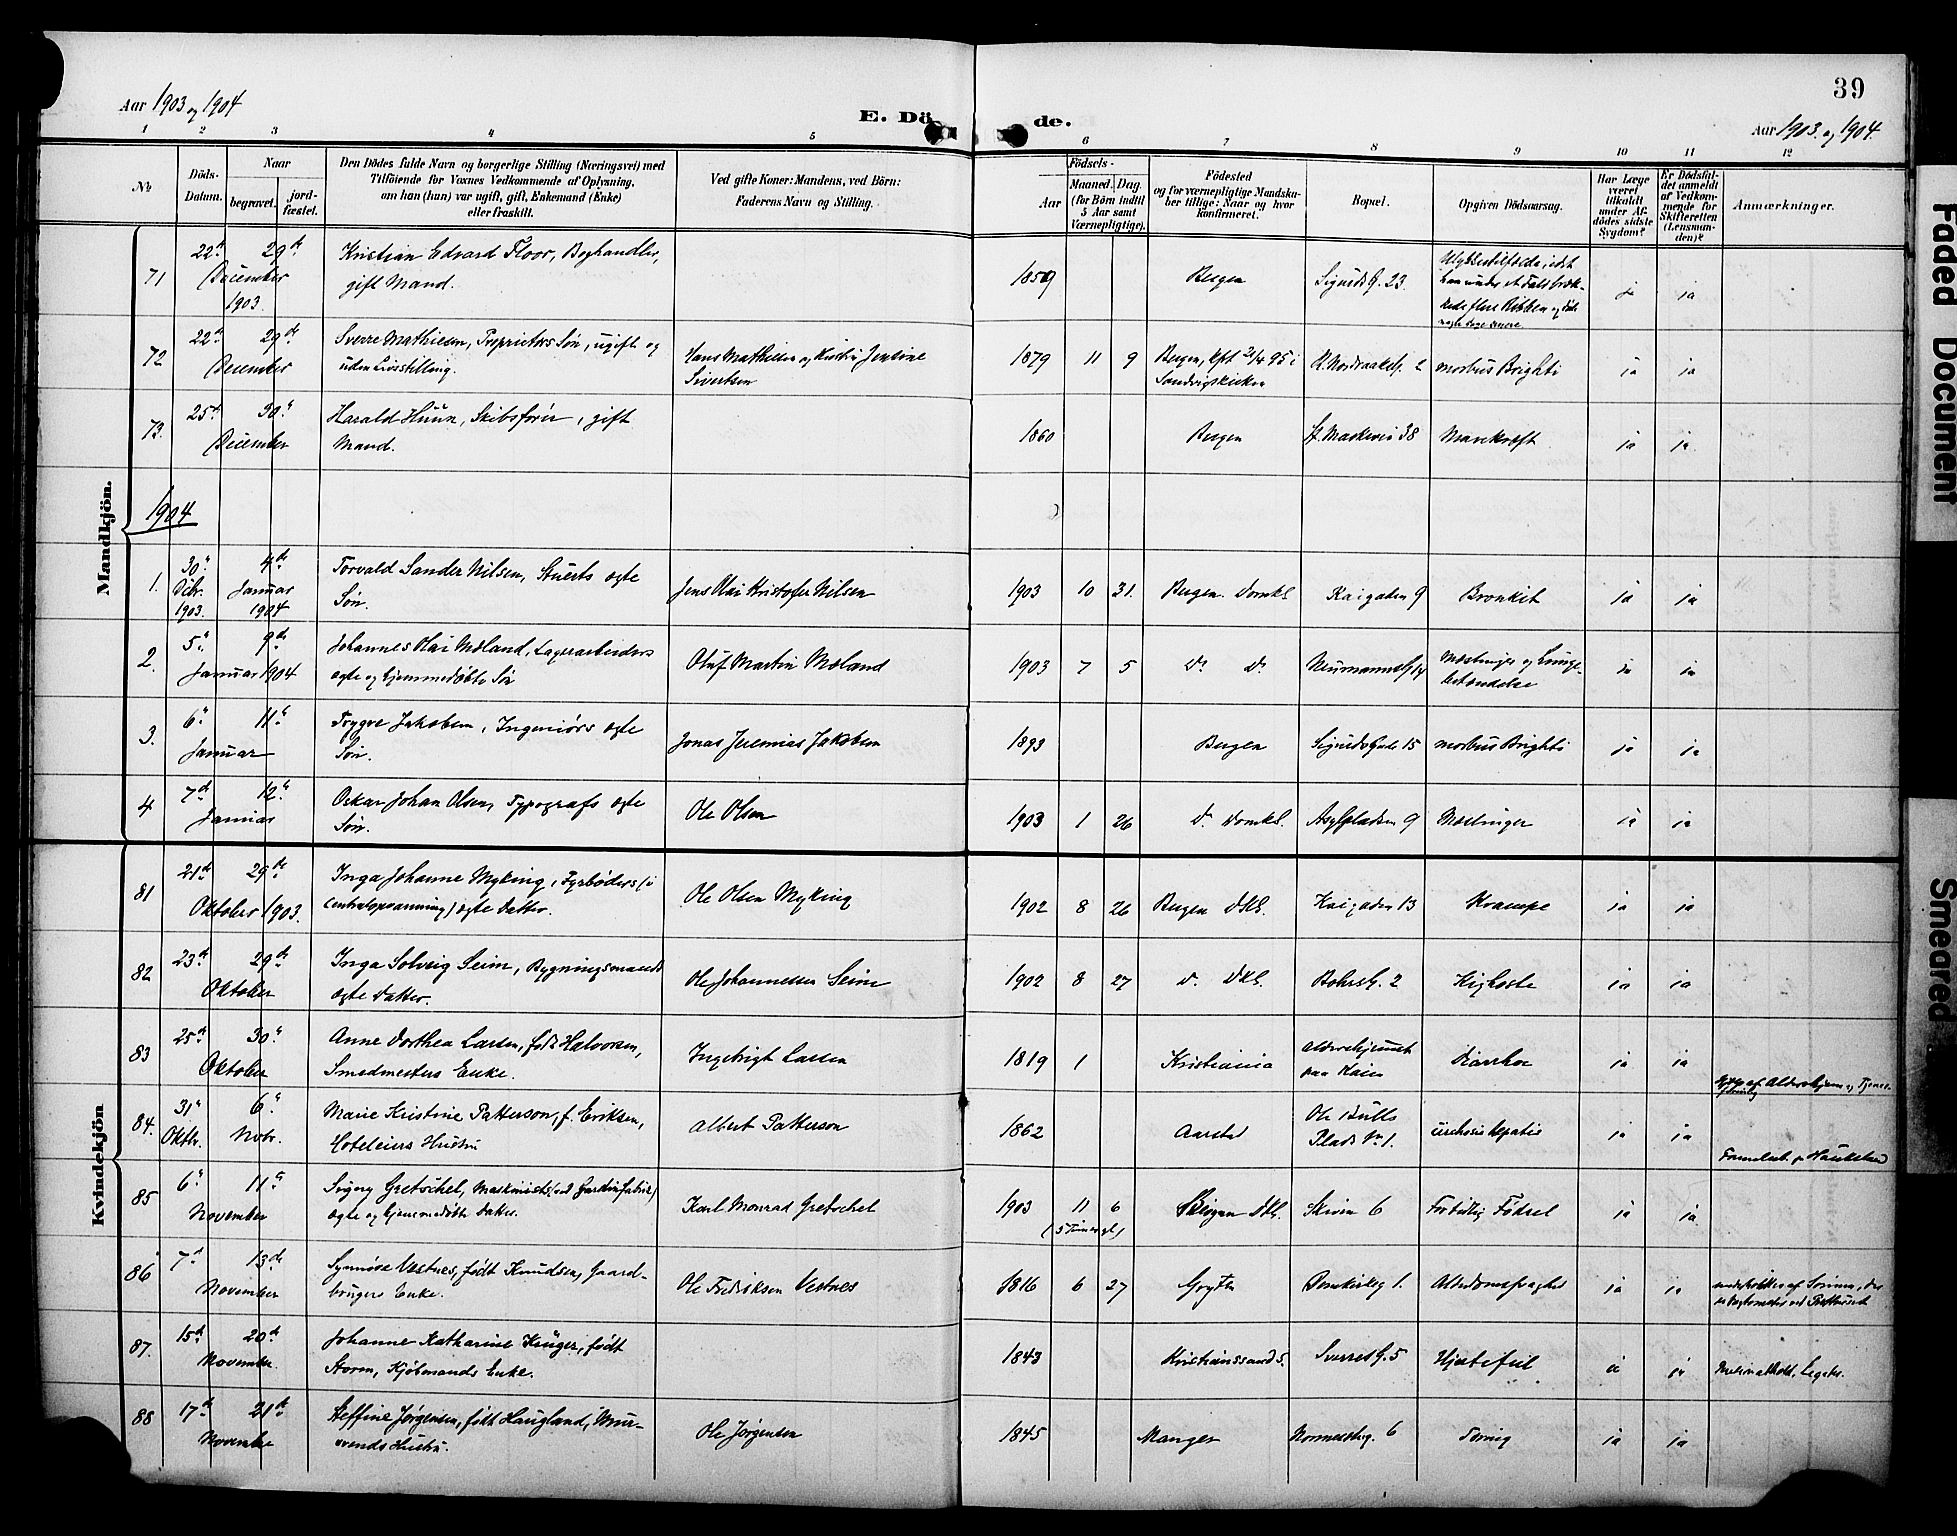 39
Aar 1903 og 1904
E. Döde.
Aar 1903 og 1904
1 2 3 4 5 6 7 8 9 10 11 12
No
Döds-Datum.
Naar
begravet.
jord-fæstet.
Den Dödes fulde Navn og borgerlige Stilling (Næringsvei) med
Tilföiende for Voxnes Vedkommende af Oplysning,
om han (hun) var ugift, gift, Enkemand (Enke)
eller fraskilt.
Ved gifte Koner: Mandens, ved Börn:
Faderens Navn og Stilling.
Födsels-
Aar
Maaned.
Dag.
(for Börn indtil
5 Aar samt
Værnepligtige).
Födested
og for værnepligtige Mandska-
ber tillige: Naar og hvor
konfirmeret.
Bopæl.
Opgiven Dödsaarsag.
Har Læge
været
tilkaldt
under Af-
dödes sidste
Sygdom?
Er Dödsfal-
det anmeldt
af Vedkom-
mende for
Skifteretten
(Lensman-
den)?
Anmærkninger.
Mandkjön.
71 22de 29de December 1903. Kristian Edvard Floor, Boghandler,
gift Mand. 1859 Bergen Sigurdsg. 23. ja ja
72 22de 29de December Sverre Mathiesen, Proprietærs Søn, ugift og
uden Livsstilling. Hans Mathiesen og Jensine
Sivertsen 1879 11 9 Bergen, kft 95 i
Sandvigskirken R. Nordraaksg. 2 morbus Brighti ja ja
73. 25de 30te December Harald Huun, Skibsfører, gift
Mand. 1860 Bergen 38 Mavekræft ja ja
1904
1. 30te Decbr. 1903. 4de Januar 1904 Torvald Sander Nilsen, Stuerts ægte
Søn. Jens Olai Kristofer Nilsen 1903 10 31. Bergen. Domkl. Kaigaden 9 Bronkit ja ja
2. 5te 9de Januar 1904 Johannes Olai Mæland, Lagerarbeiders
ægte og hjemmedøbte Søn Oluf Martin Mæland 1903 7 5 do do Neumannsg. 14 Mæslinger og Lunge-
betændelse ja ja
3. 6te 11te Januar Trygve Jakobsen, Ingeniørs ægte
Søn. Jonas Jeremias Jakobsen 1893 Bergen Sigurdsgade 15 morbus Brighti ja ja
4 7de 12te Januar Oskar Johan Olsen, Typografs ægte
Søn. Ole Olsen 1903 1 26 do Domkl. Asylpladsen 9 Mæslinger ja ja
Kvindekjön
81 21de 29de Oktober 1903. Inga Johanne Myking, Fyrbøders (i
centralopvarmning) ægte Datter. Ole Olsen Myking 1902 8 26 Bergen Dkl. Kaigaden 13 Krampe ja ja
82 23de 29de Oktober Inga Solveig Seim, Bygningsmands
ægte Datter. Ole Johannessen Seim 1902 8 27 do Dkl. Bohrsg. 2 Kighoste ja ja
83 25de 30te Oktober Anne Dorthea Larsen, født Halvorsen,
Smedmesters Enke. Ingebrigt Larsen 1819 1 Kristiania Aldershjemmet
paa Kaien Diarrhoe ja ja
84. 31te Oktbr. 6te Novbr. Marie Kristine Patterson, f. Eriksen,
Hoteleiers Hustru Albert Patterson 1862 Aarstad Ole Bulls
Plads No 1. cirrhosis hepatis ja ja
85 6te 11te November Signy Gretschel, Maskinists (ved Gardinfabrik)
ægte og hjemmedøbte Datter. Karl Monrad Gretschel 1903 11 6
(5 Timer gl.) Bergen Dkl. Skiven 6 Fortidlig Fødsel ja ja
86 7de 13de November Synnøve Vestnes, født Knudsen, Gaard-
brugers Enke. Ole Fredriksen Vestnes 1816 6 27 Grytten Domkirkeg. 1. Alderdomssvaghed ja ja
87. 15de 20de November Johanne Katharine Krüger, født
Storm, Kjøbmands Enke. 1843 Kristianssund S. Sverresg. 5 Hjertefeil ja ja
88 17de 21de November Steffine Jørgensen, født Haugland, Mur-
svends Hustru. Ole Jørgensen 1845 Manger 6 Tæring ja ja
Faded Document
Smeared